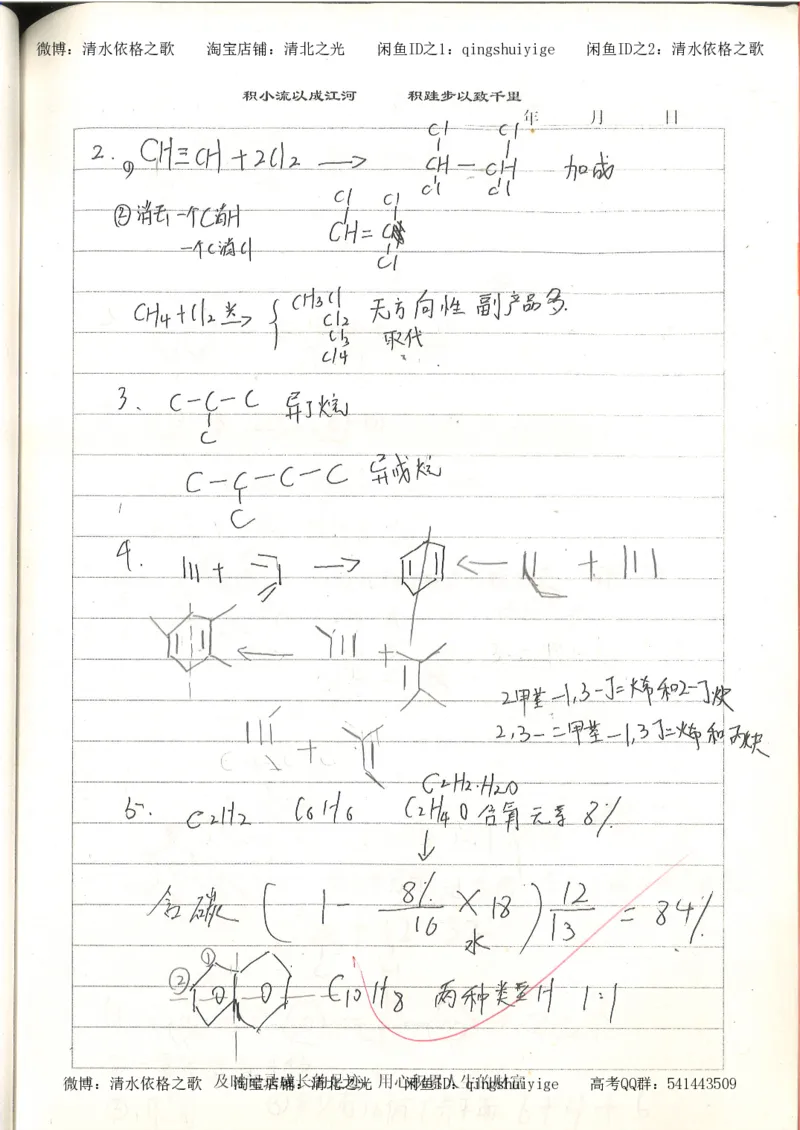 微博：清水依格之歌 淘宝店铺：清北之光 闲鱼ID之1：qingshuiyige 闲鱼ID之2：清水依格之歌
积小流以成江河 积跬步以致千里
年 月 日
Cl Cl
2. ① CH≡CH + 2Cl2 → CH — CH 加成
Cl Cl
② 消去 一个C消H
Cl Cl
一个C消Cl CH = C
Cl
CH4 + Cl2 光→ { CH3Cl 无方向性 副产品多.
Cl2 取代
Cl3
Cl4
3. C — C — C 异丁烷
C
C — C — C — C 异戊烷
C
4. + → ← +
← +
2甲基-1,3-丁二烯和2-丁炔
2,3-二甲基-1,3丁二烯和丙炔
+
C2H2·H2O
5. C2H2 C6H6 C2H4O 含氧元素 8%
↓
含碳 ( 1 - 8%/16 × 18 ) 12/13 = 84%
水
① ② C10H8 两种类型H 1:1
及时记录成长的足迹 用心积累人生的财富
微博：清水依格之歌 淘宝店铺：清北之光 闲鱼ID：qingshuiyige 高考QQ群：541443509